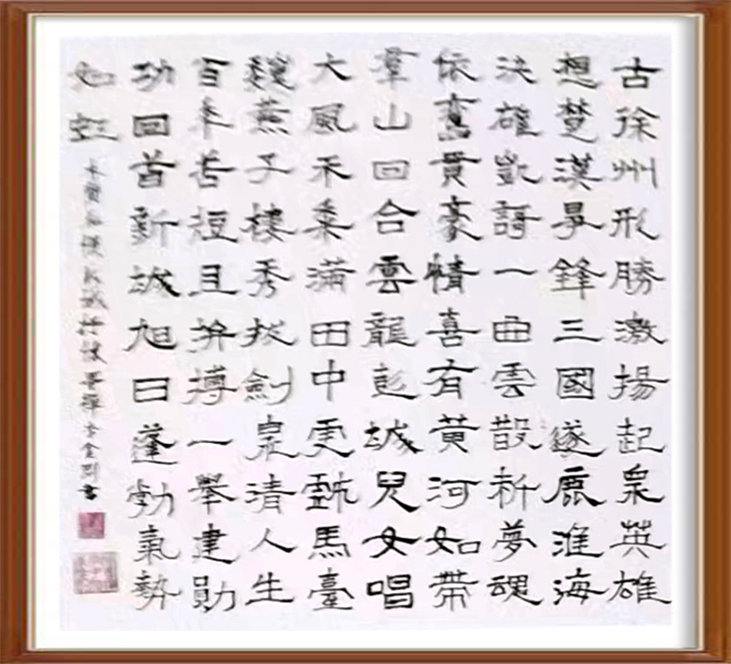 古徐州形勝激揚起衆英雄
想楚漢爭鋒三國逐鹿淮海
決確凱謌一曲雲散析夢魂
依舊貫豪情喜有黃河如帶
羣山回合雲龍彭城兒女唱
大風禾黍滿田中更戲馬臺
巍燕子樓秀拔劍泉清人生
百年苦短且拚搏一舉建勛
功回首新城旭日蓬勃氣勢
如虹
書